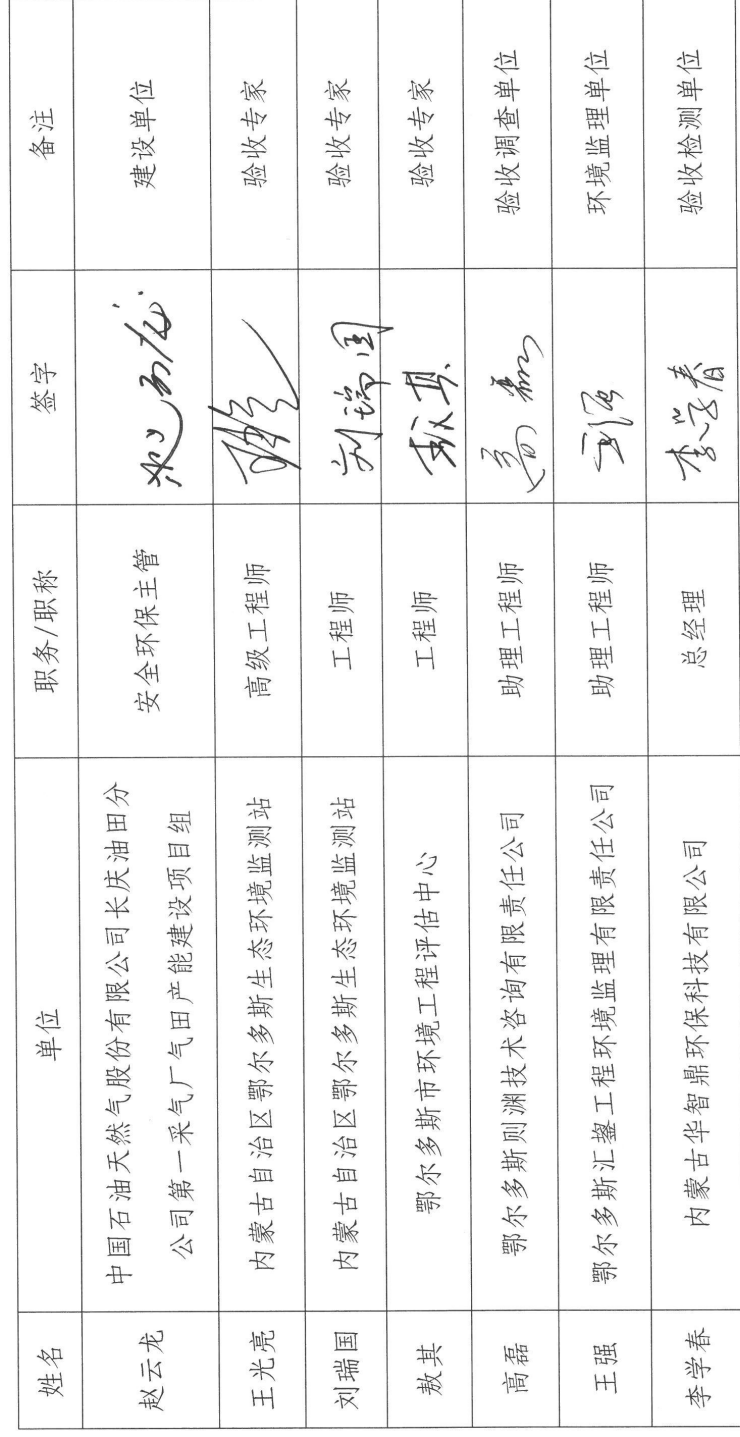 姓名 单位 职务/职称 签字 备注
赵云龙 中国石油天然气股份有限公司长庆油田分
公司第一采气厂气田产能建设项目组 安全环保主管 建设单位
王光亮 内蒙古自治区鄂尔多斯生态环境监测站 高级工程师 验收专家
刘瑞国 内蒙古自治区鄂尔多斯生态环境监测站 工程师 刘瑞国 验收专家
敖其 鄂尔多斯市环境工程评估中心 工程师 敖其 验收专家
高磊 鄂尔多斯则渊技术咨询有限责任公司 助理工程师 高磊 验收调查单位
王强 鄂尔多斯汇鋆工程环境监理有限责任公司 助理工程师 王强 环境监理单位
李学春 内蒙古华智鼎环保科技有限公司 总经理 李学春 验收检测单位